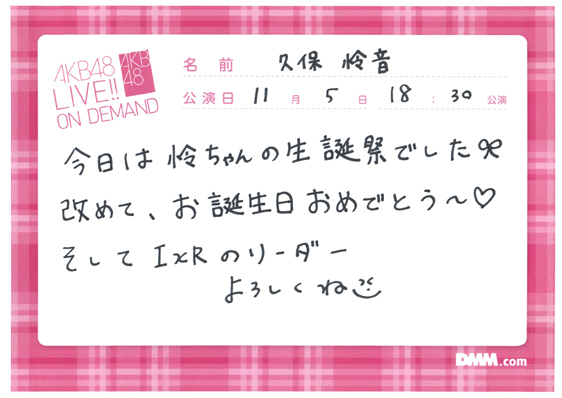 AKB48
LIVE!!
ON DEMAND
AKB
48
名前 久保 怜音
公演日 11 月 5 日 18 : 30 公演
今日は 怜ちゃんの生誕祭でした
改めて、お誕生日おめでとう〜♡
そして IxRのリーダー
よろしくね
DMM.com